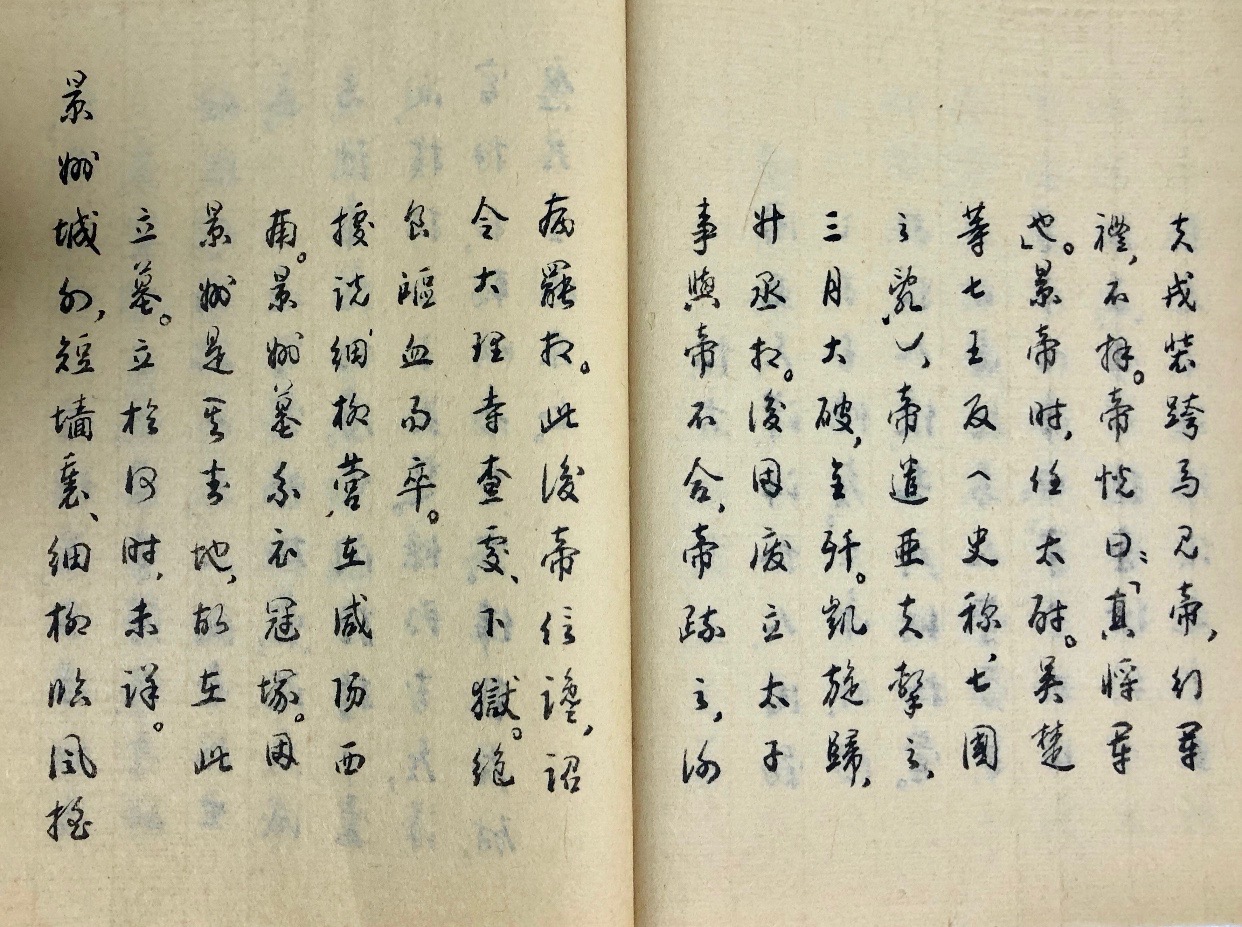 夫戎装跨马见帝，行军
禮，不拜。帝悦曰：「真将军
也」。景帝时，任太尉。吴楚
等七王反（史称，七国
之乱），帝遣亚夫擊之、
三月大破，全歼。凱旋歸，
升丞相。後因废立太子
事與帝不合，帝疏之，谢
病罷相。此後帝信谗，詔
令大理寺查處、下獄。绝
食嘔血而卒。
據说细柳营，在咸阳西
南。景州墓系衣冠塚。因
景州是其封地，故在此
立墓。立於何时，未详。
景州城外，短墙裏、细柳临风摇